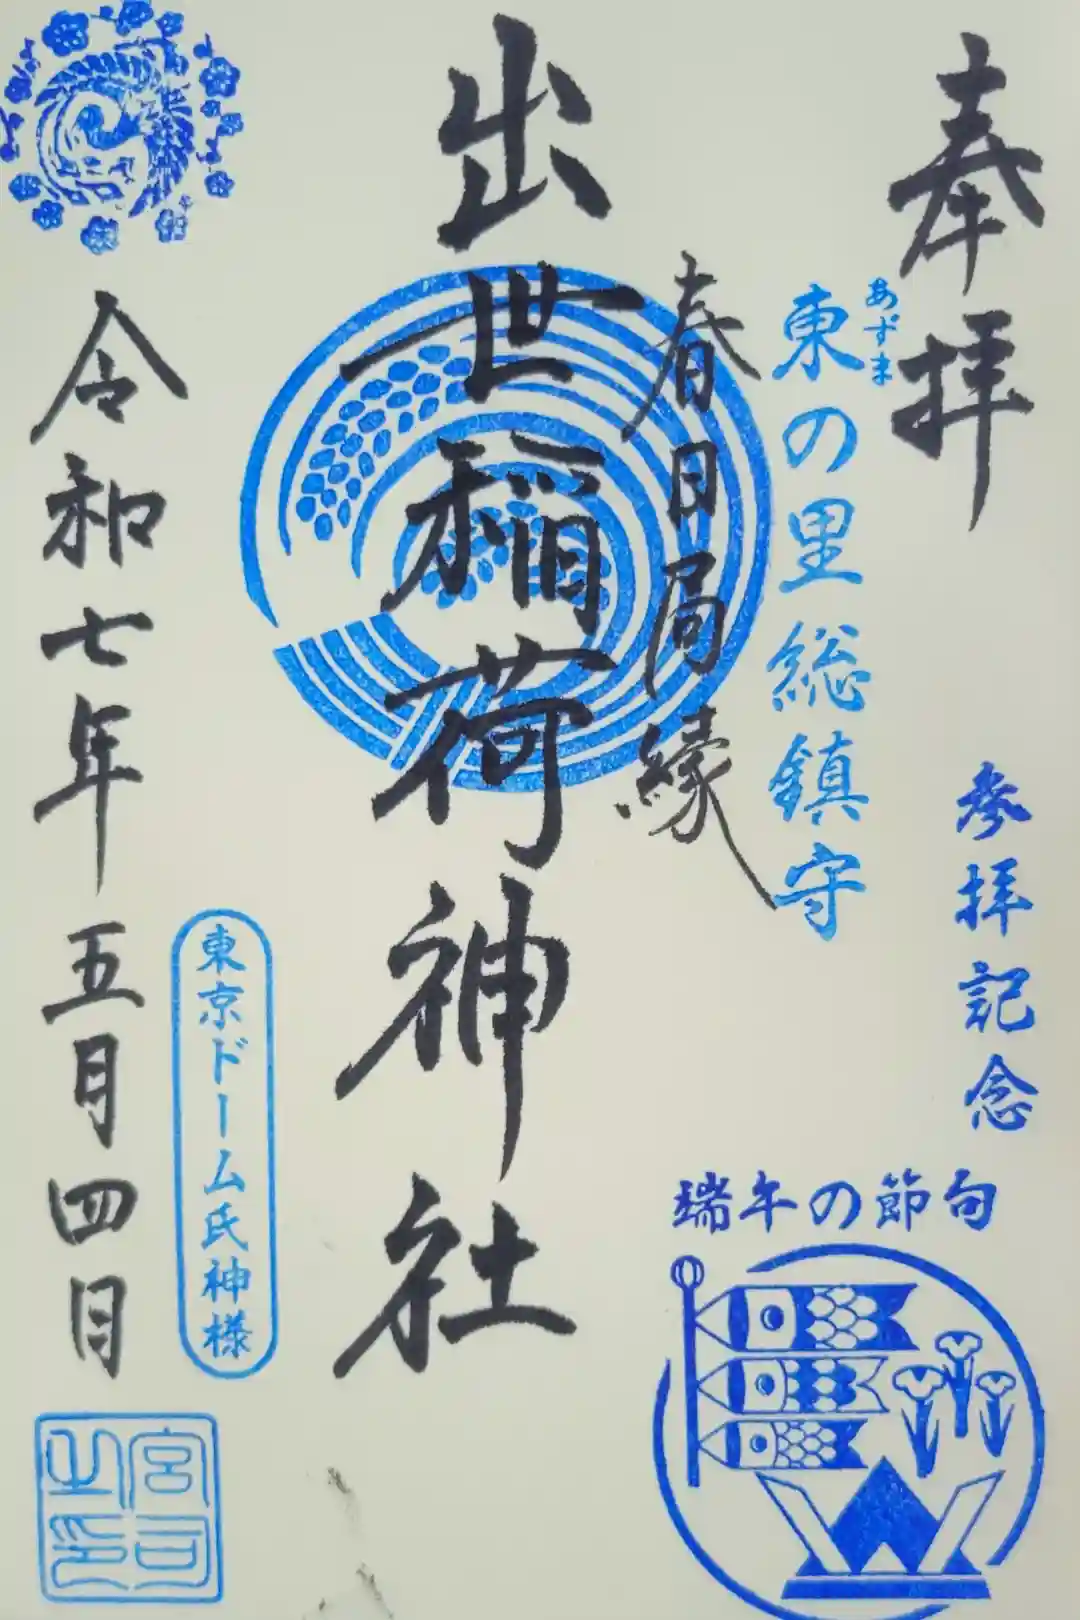 奉拝
参拝記念
東の里総鎮守
あずま
春日局縁
出世稲荷神社
東京ドーム氏神様
令和七年五月四日
端午の節句
宮司
之印